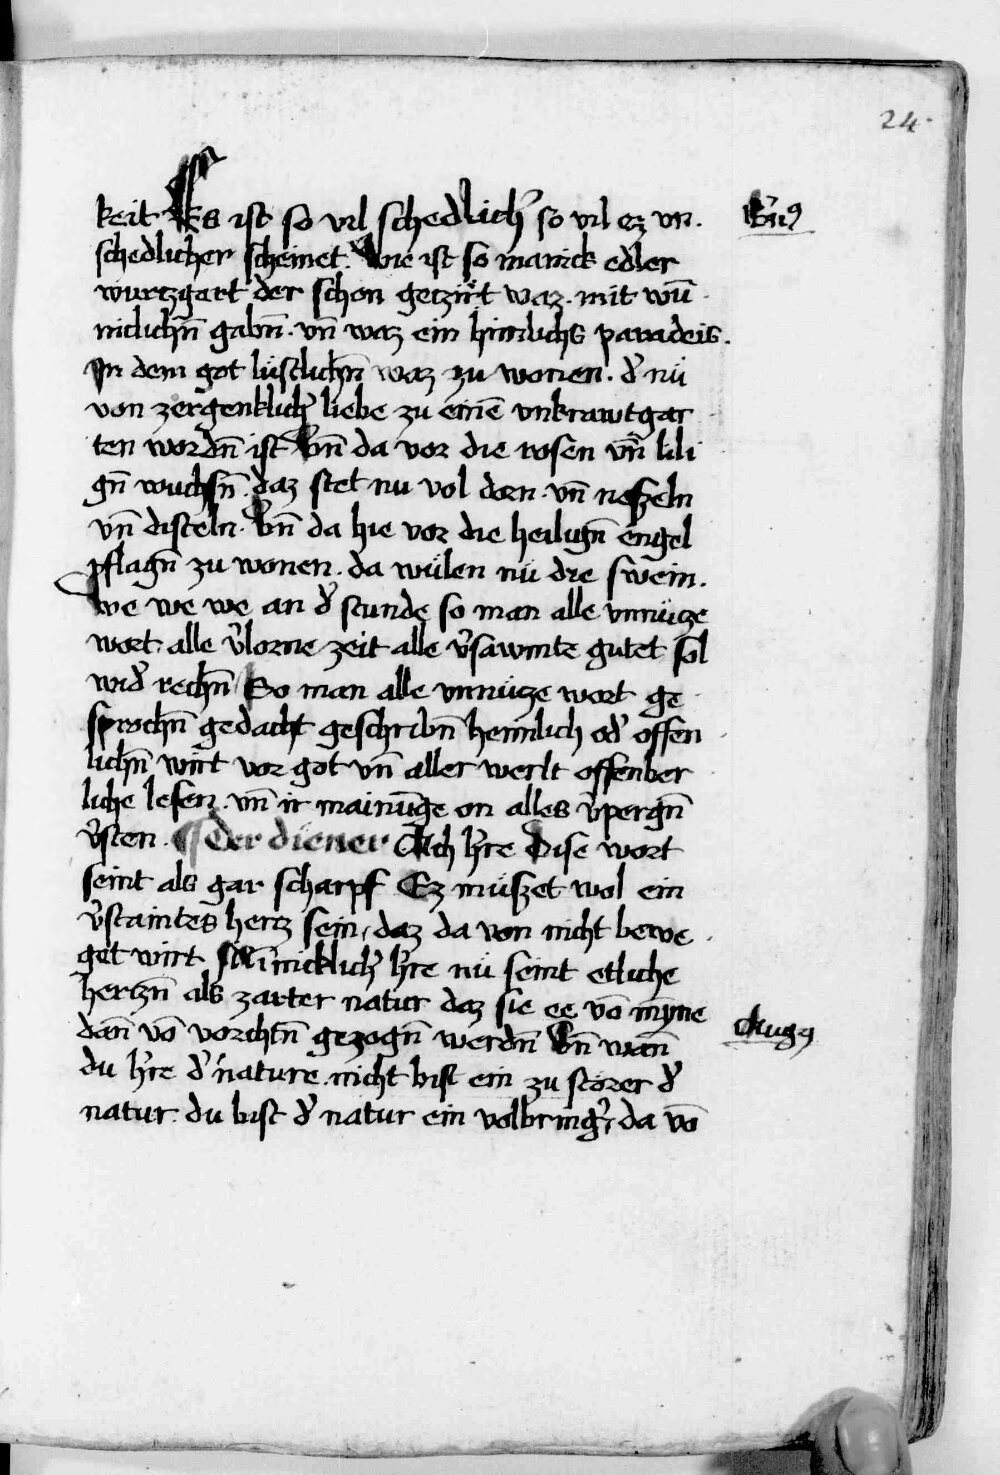 24.
keit Es ist so vil schedlich͛ so vil ez vn.
schedlicher scheinet. Wie ist so manick edler
wurtzgart der schon geziirt waz. mit wu̅
niclichn̅ gabn̅. vn̅ waz ein himlichs paradeis.
In dem got lüstlichn̅ waz zu wonen. d͛ nü
von zergenklich͛ liebe zu eine̅ vnkrawtgar
ten wordn̅ ist Vn̅ da vor die rosen vn̅ lili
gn̅ wuchsn̅. daz stet nu vol dorn. vn̅ neszeln
vn̅ disteln. Vn̅ da hie vor die heilign̅ engel
pflagn̅ zu wonen. da wülen nü die swein.
We we we an d͛ stunde so man alle vnnücze
wort alle v͛lorne zeit alle v͛sawmte gutet sol
wid͛ rechn̅ So man alle vnnücze wort ge
sprochn̅ gedacht geschribn̅ heimlich od͛ offen
lichn̅ wirt vor got vn̅ aller werlt offenber
liche lesen. vn̅ ir mainu̅ge on alles v͛pergn̅
v͛sten. ¶ Der diener Ach h͛re Dise wort
seint als gar scharpf Ez müszet wol ein
v͛staintes hertz sein, daz da von nicht bewe
get wirt Mi̅nicklich͛ h͛re nü seint etliche
hertzn̅ als zarter natur daz sie ee vo̅ mynne
dan̅ vo̅ vorchtn̅ gezogn̅ werdn̅ Vn̅ wan̅
du h͛re d͛ nature nicht bist ein zu störer d͛
natur. du bist d͛ natur ein volbring͛, da vo̅